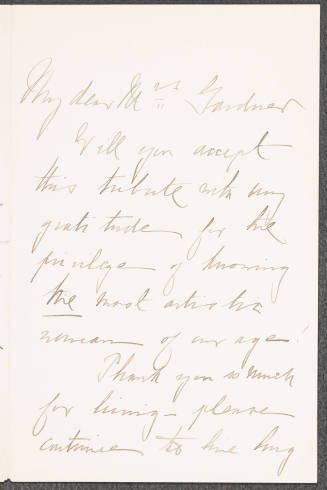 My dear Mrs Gardner
Will you accept
this tribute with my
gratitude for the
privilege of knowing
the most artistic
woman of our age!
Thank you so much
for living – please
continue to live long